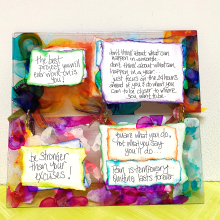 The best
project you will
ever work on is
you!
don't think about what can
happen in a month.
don't think about what can
happen in a year.
just focus on the 24 hours
ahead of you & do what you
can to be closer to where
you want to be.
be stronger
than your
excuses!
aware what you do,
not what you say
you'll do.
Pain is temporary
Quitting lasts forever.